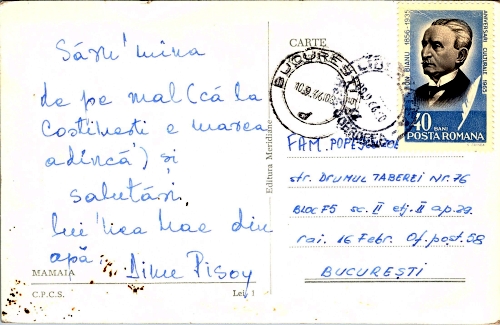 Săru' mîna
de pe mal (că la
Costinești e marea
adîncă) și
salutări
lui 'nea Mac din
apă.
MAMAIA
C.P.C.S.
Lei 1
Editura Meridiane
CARTE
BUCUREȘTI
ION BIANU 1856-1935
ANIVERSĂRI CULTURALE 1965
40 BANI
POSTA ROMANA
FAM. POPESCU
str. DRUMUL TABEREI Nr. 76
BLOC F5 sc. II etj. II ap. 29.
rai. 16 Febr. Of. post. 58
BUCUREȘTI